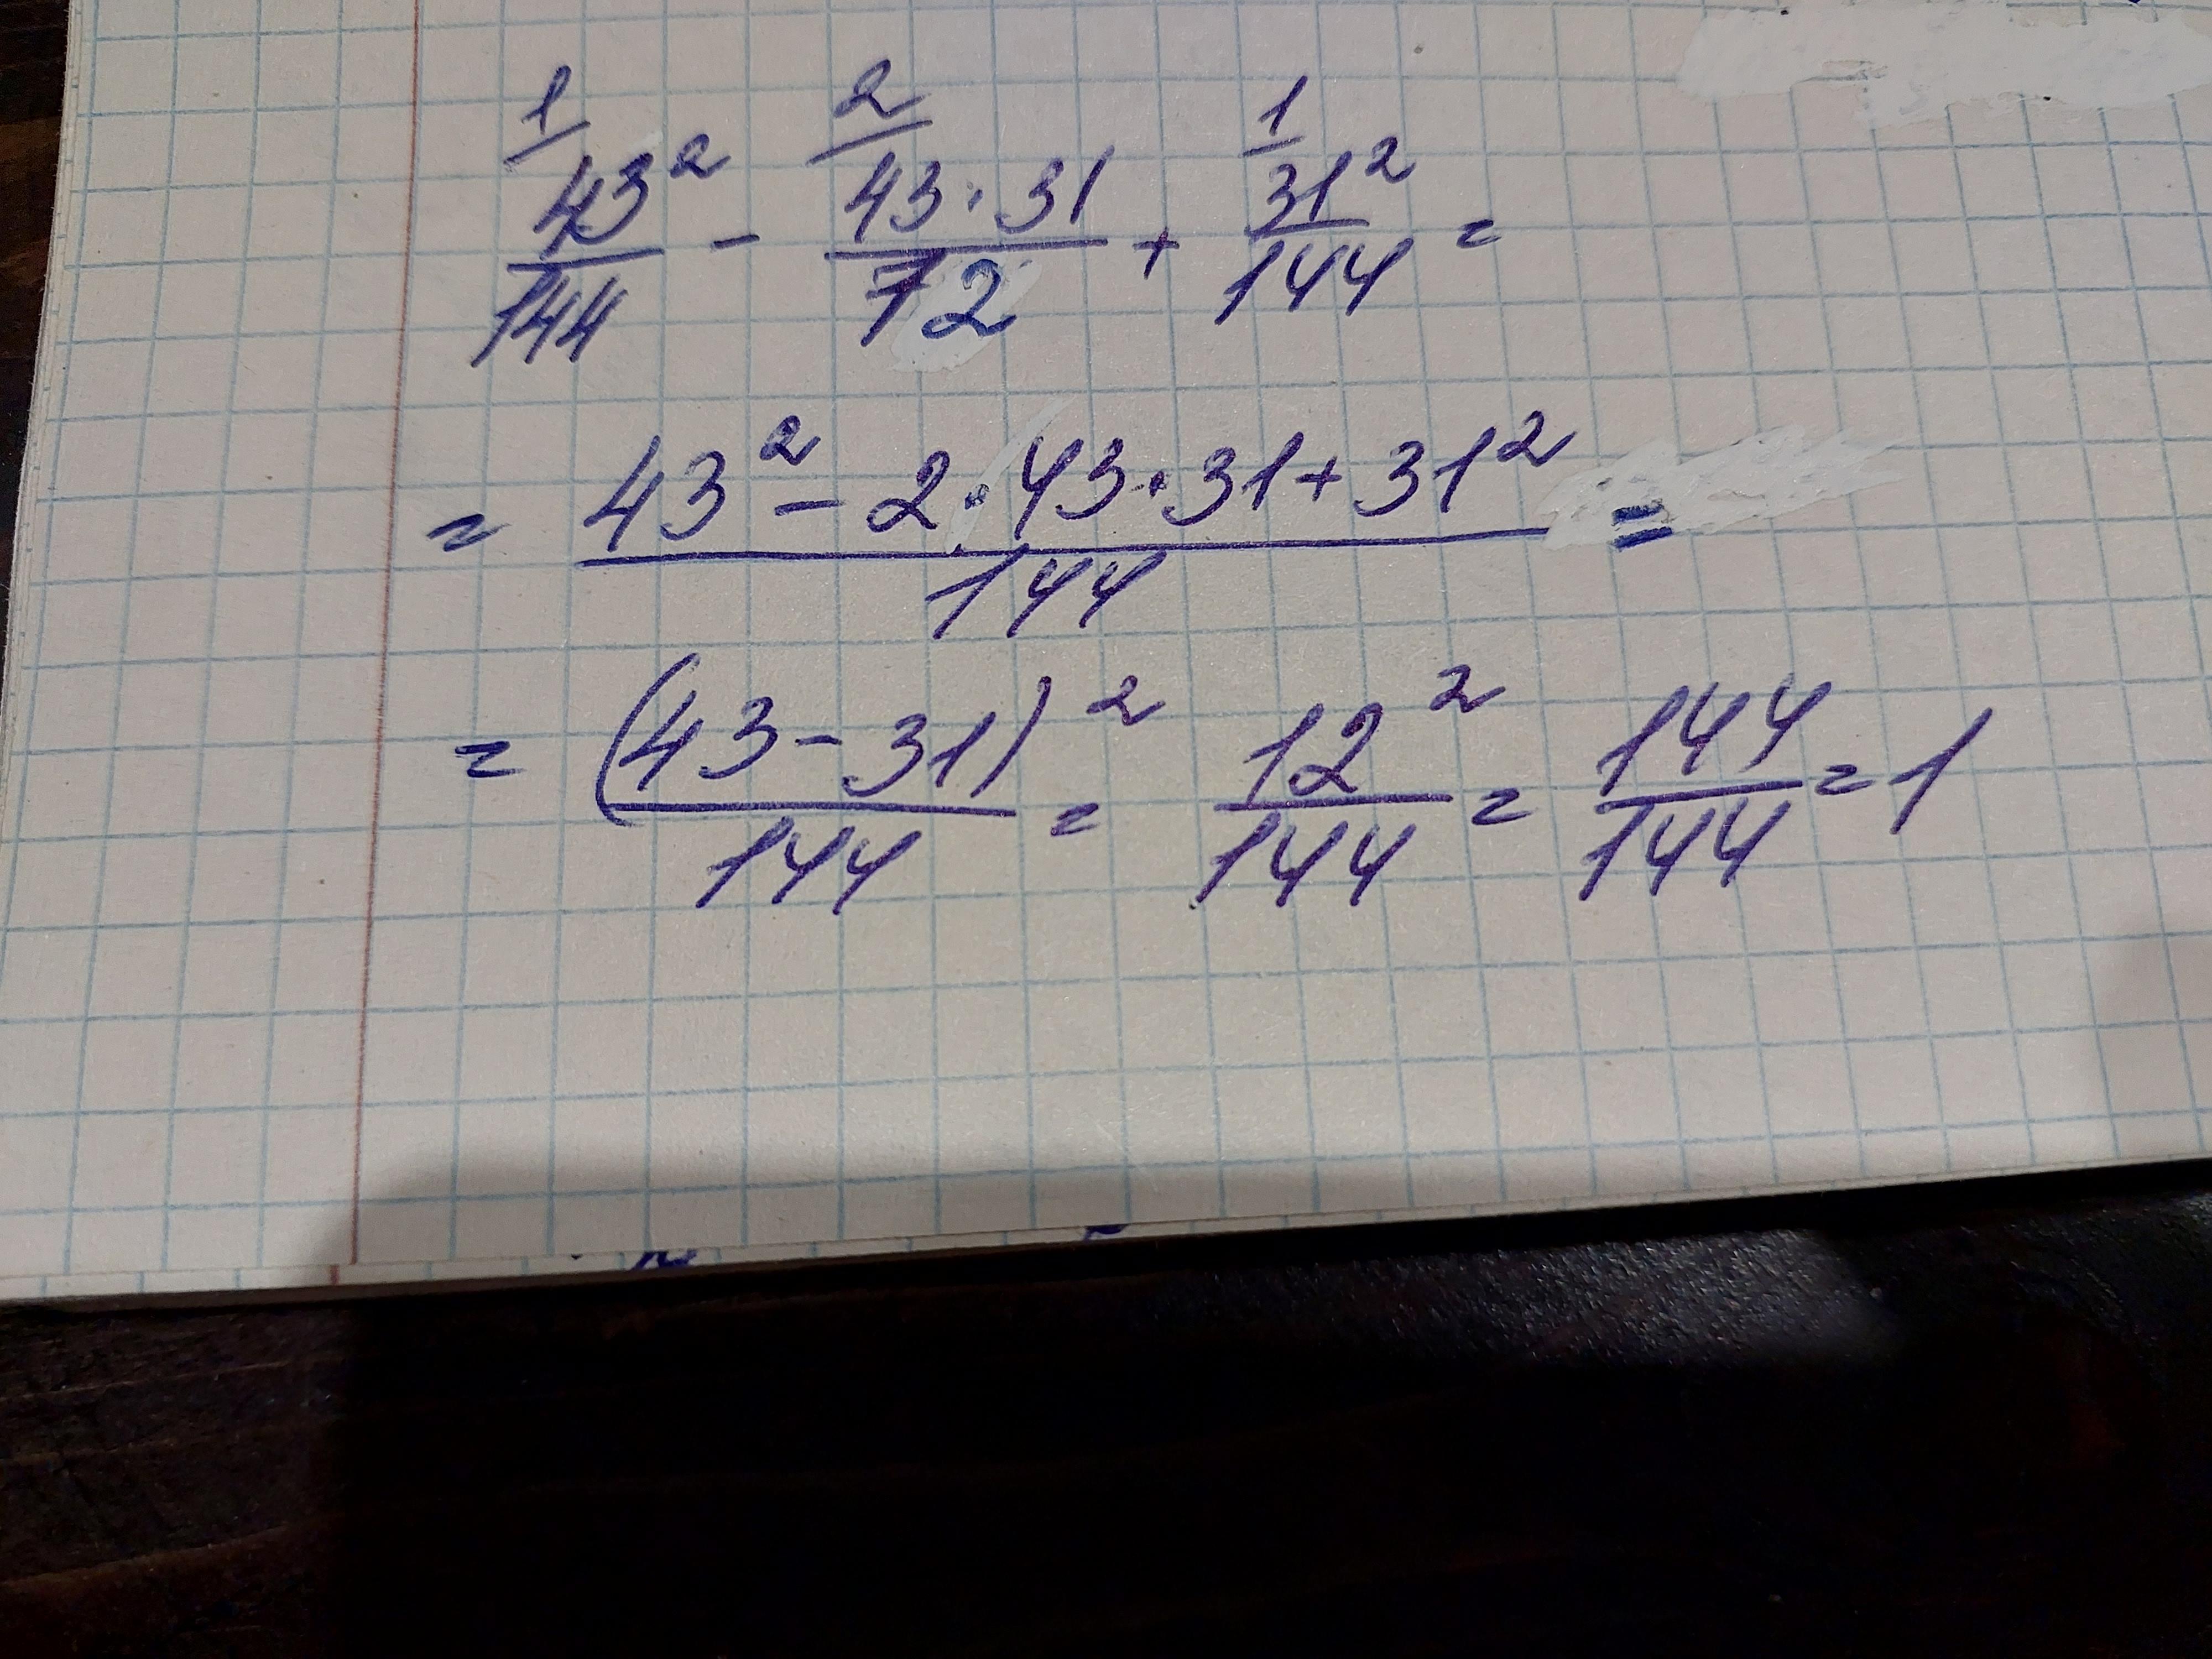 1/ 43²/144 - 2/ 43·31/72 + 1/ 31²/144 =
= 43² - 2·43·31 + 31² / 144 =
= (43 - 31)² / 144 = 12²/144 = 144/144 = 1